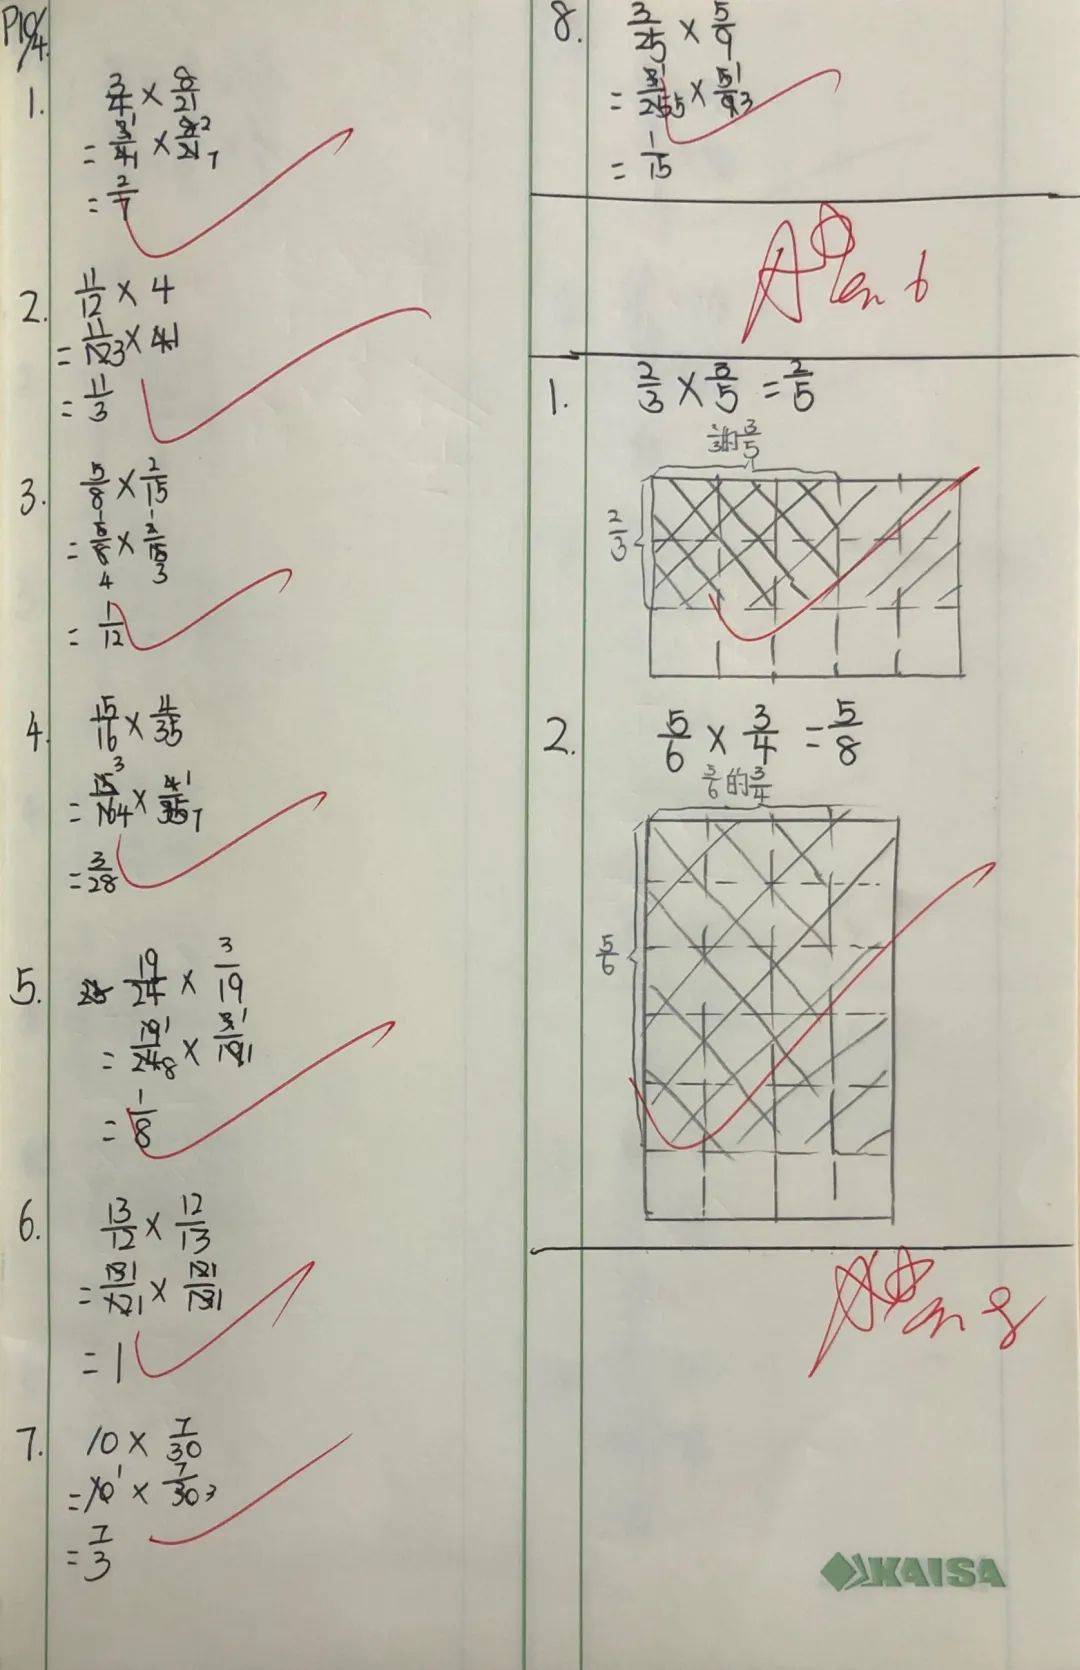 P10/4.
1. 3/4 × 8/21
= 3 1/4 1 × 8 2/21 7
= 2/7
2. 11/12 × 4
= 11/12 3 × 4 1
= 11/3
3. 5/8 × 2/15
= 5 1/8 4 × 2 1/15 3
= 1/12
4. 15/16 × 4/35
= 15 3/16 4 × 4 1/35 7
= 3/28
5. 19/24 × 3/19
= 19 1/24 8 × 3 1/19 1
= 1/8
6. 13/12 × 12/13
= 13 1/12 1 × 12 1/13 1
= 1
7. 10 × 7/30
= 10 1 × 7/30 3
= 7/3
8. 3/25 × 5/9
= 3 1/25 5 × 5 1/9 3
= 1/15
1. 2/3 × 3/5 = 2/5
2/3的3/5
2/3
2. 5/6 × 3/4 = 5/8
5/6的3/4
5/6
KAISA